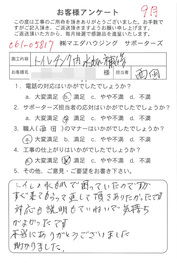 お客様アンケート
9月
この度は工事のご用命を頂きありがとうございました。お手数で
すがご記入頂き、ご返送頂けましたら幸いです。
ご返送頂いた方から、毎月抽選で感謝品を進呈いたします。
㈱マエダハウジング サポーターズ
工事内容 トイレタンク内水漏補修
お客様名 様 担当者 西田
1. 電話の対応はいかがでしたでしょうか?
大変満足 満足 ・ やや不満 ・ 不満
2. サポーターズ担当者の対応はいかがでしたでしょうか?
大変満足 ・ 満足 ・ やや不満 ・ 不満
3. 職人(西田)のマナーはいかがでしたでしょうか?
大変満足 ・ 満足 ・ やや不満 ・ 不満
4. 工事の仕上がりはいかがでしたでしょうか?
大変満足 ・ 満足 ・ やや不満 ・ 不満
5. その他、ご意見・ご要望をお聞かせ下さい
トイレの水もれで困っていたので
すぐ来てもらって直して頂きありがたかったです
対応も説明もていねいで気持ち
がよかったです
本当にありがとうございました
助かりました。